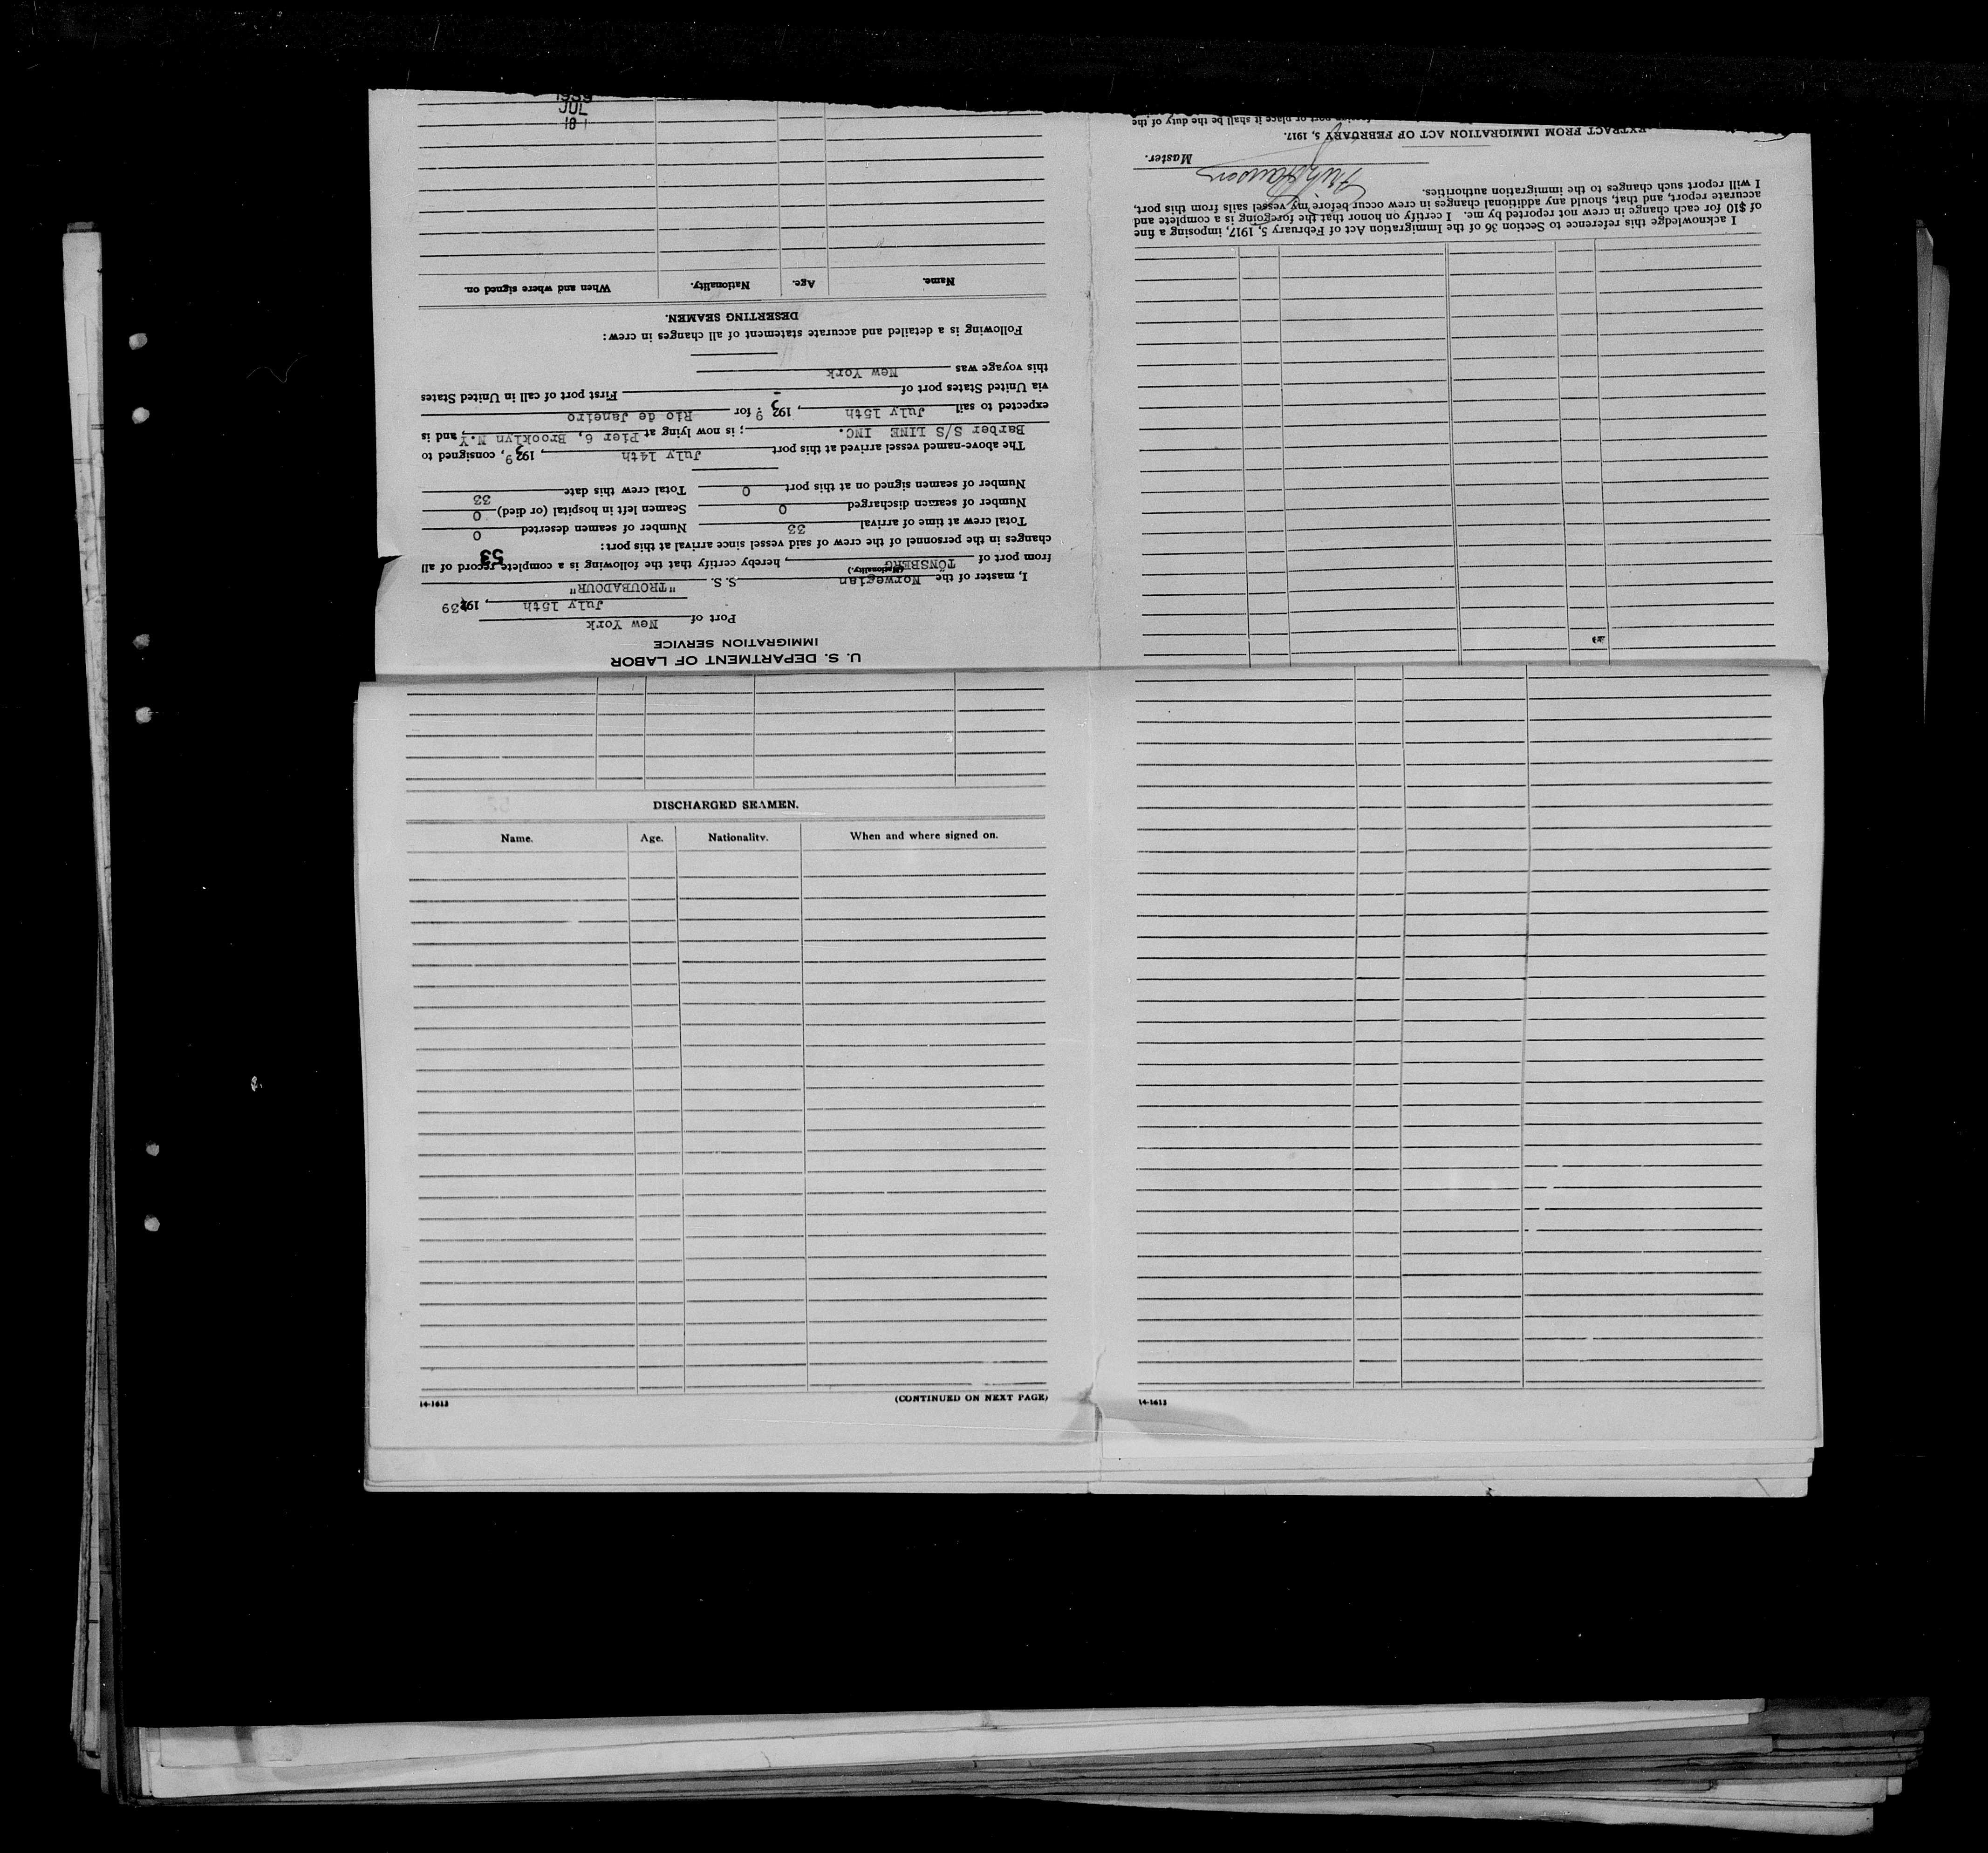 U. S. DEPARTMENT OF LABOR
IMMIGRATION SERVICE
Port of New York
July 15th, 1939
I, master of the Norwegian S. S. "TROUBADOUR"
(Nationality.)
from port of TÖNSBERG, hereby certify that the following is a complete record of all
53
changes in the personnel of the crew of said vessel since arrival at this port:
Total crew at time of arrival 33 Number of seamen deserted 0
Number of seamen discharged 0 Seamen left in hospital (or died) 0
Number of seamen signed on at this port 0 Total crew this date 33
The above-named vessel arrived at this port July 14th, 1939, consigned to
Barber S/S LINE INC.; is now lying at Pier 6, Brooklyn N.Y, and is
expected to sail July 15th, 1939 for Rio de Janeiro
via United States port of - First port of call in United States
this voyage was New York
Following is a detailed and accurate statement of all changes in crew:
DESERTING SEAMEN.
Name. Age. Nationality. When and where signed on.
JUL
1939
I acknowledge this reference to Section 36 of the Immigration Act of February 5, 1917, imposing a fine
of $10 for each change in crew not reported by me. I certify on honor that the foregoing is a complete and
accurate report, and that, should any additional changes in crew occur before my vessel sails from this port,
I will report such changes to the immigration authorities.
Master.
EXTRACT FROM IMMIGRATION ACT OF FEBRUARY 5, 1917.
port or place it shall be the duty of the
DISCHARGED SEAMEN.
Name. Age. Nationality. When and where signed on.
(CONTINUED ON NEXT PAGE)
14-1613
14-1613